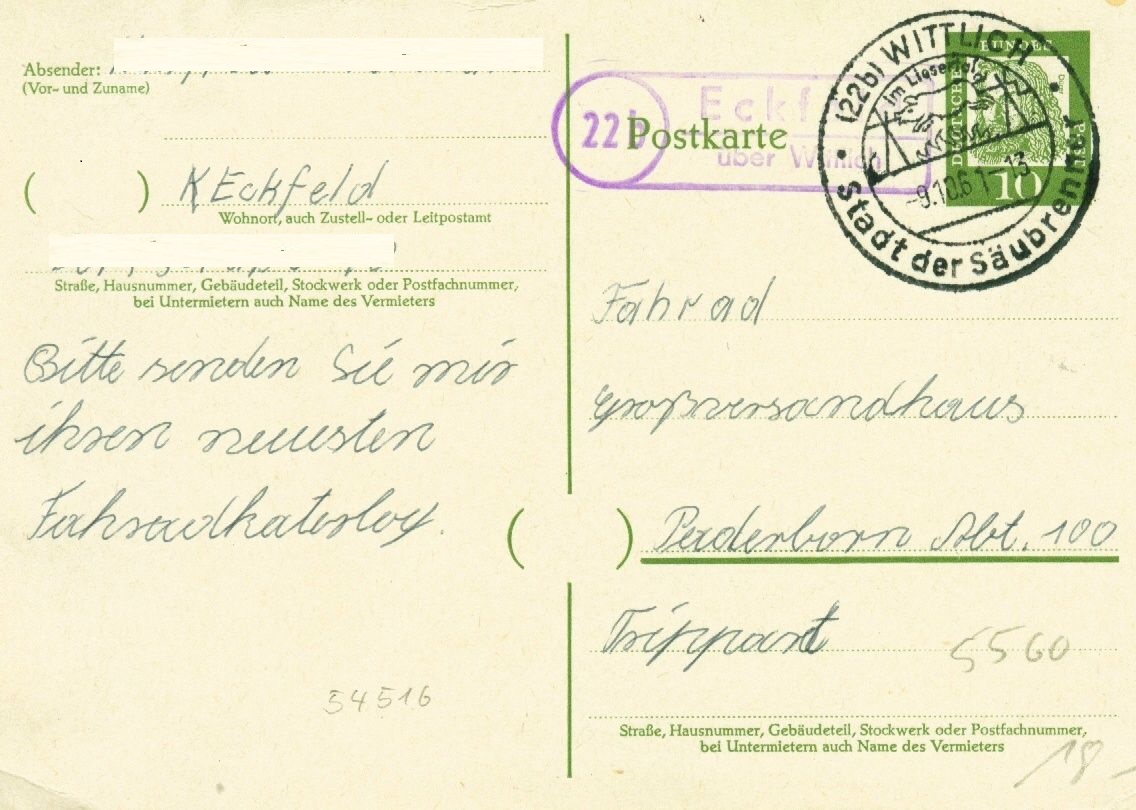 Absender:
(Vor- und Zuname)
( ) Eckfeld
Wohnort, auch Zustell- oder Leitpostamt
Straße, Hausnummer, Gebäudeteil, Stockwerk oder Postfachnummer,
bei Untermietern auch Name des Vermieters
Bitte senden Sie mir
ihren neusten
Fahradkatalog.
54516
22b
Eckf
über Wittlich
Postkarte
(22b) WITTLICH
Im Liesertal
-9.10.61-13
Stadt der Säubrenner
DEUTSCHE
BUNDES
10
Fahrad
Großversandhaus
( ) Paderborn Abt. 100
5560
Straße, Hausnummer, Gebäudeteil, Stockwerk oder Postfachnummer,
bei Untermietern auch Name des Vermieters
18-